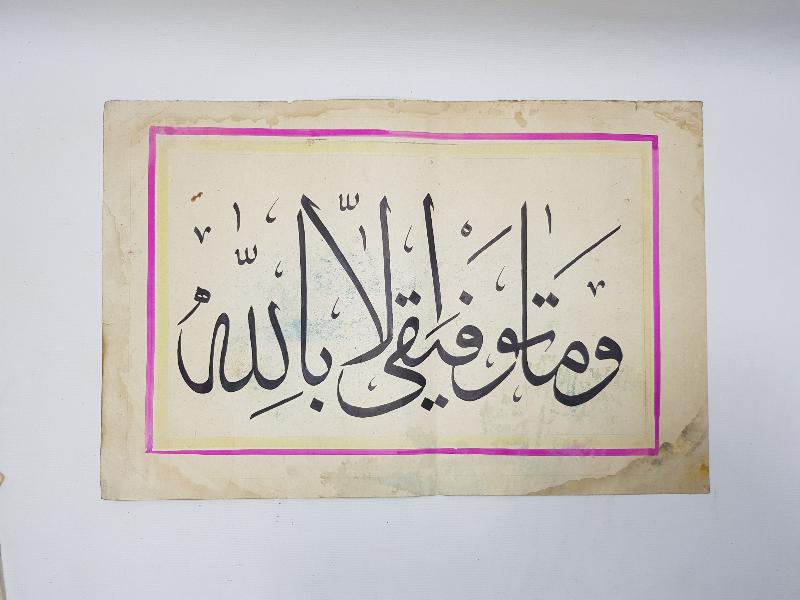 وما توفيقى إلا بالله